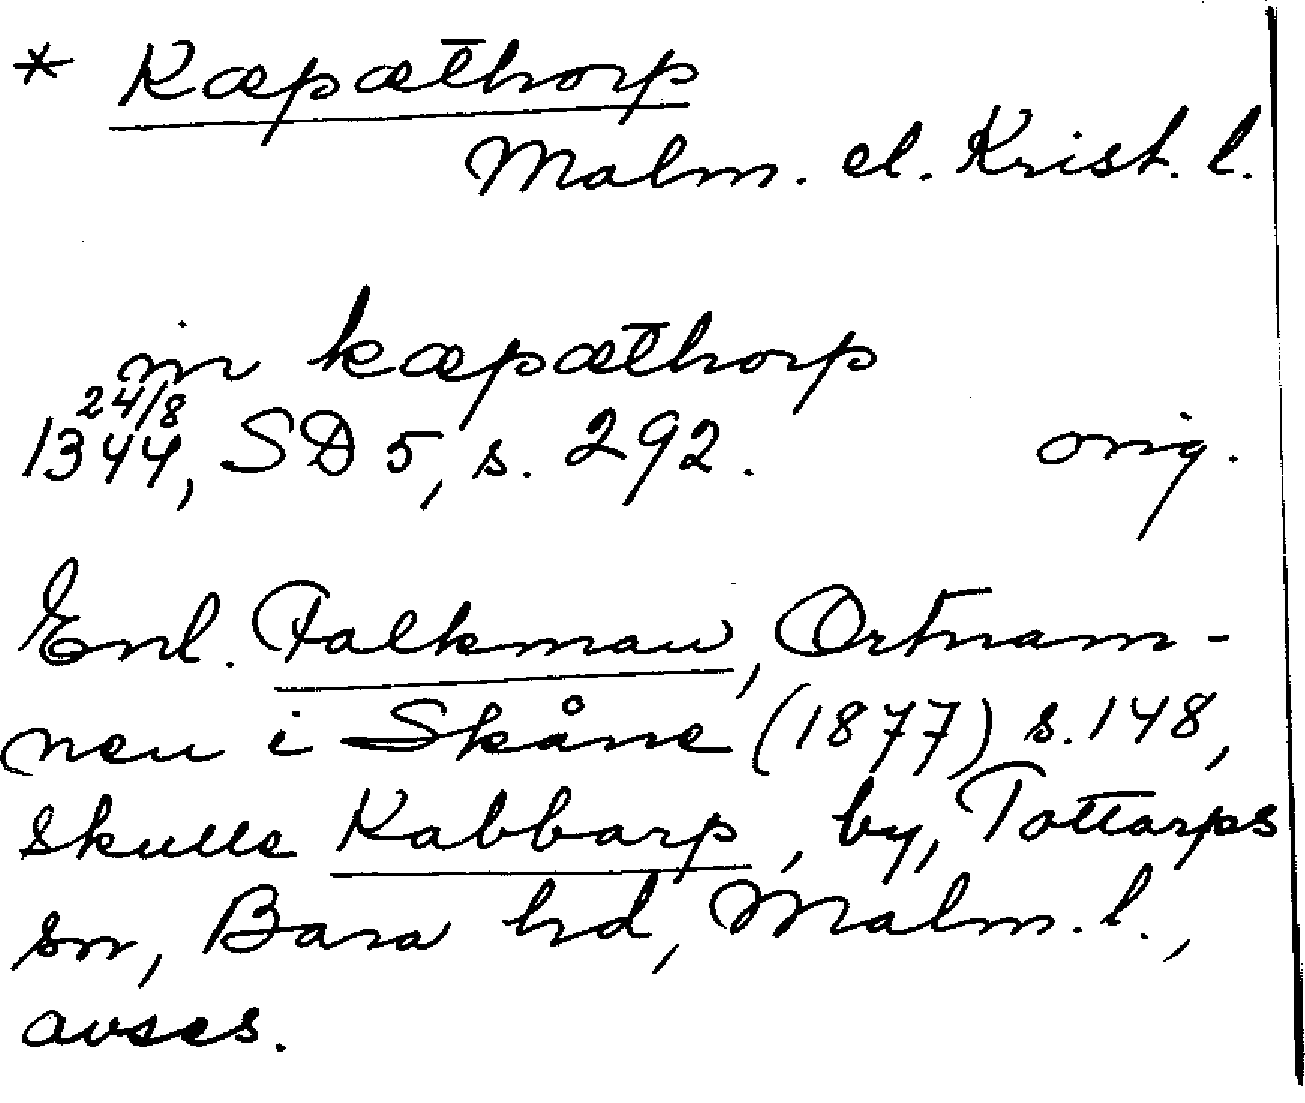 * Kæpæthorp
Malm. el. Krist. l.
in kæpæthorp
24/8
1344, SD 5, s. 292. orig.
Enl. Falkman, Ortnam-
nen i Skåne (1877) s. 148,
skulle Kabbarp, by, Tottarps
sn, Bara hd, Malm. l.,
avses.